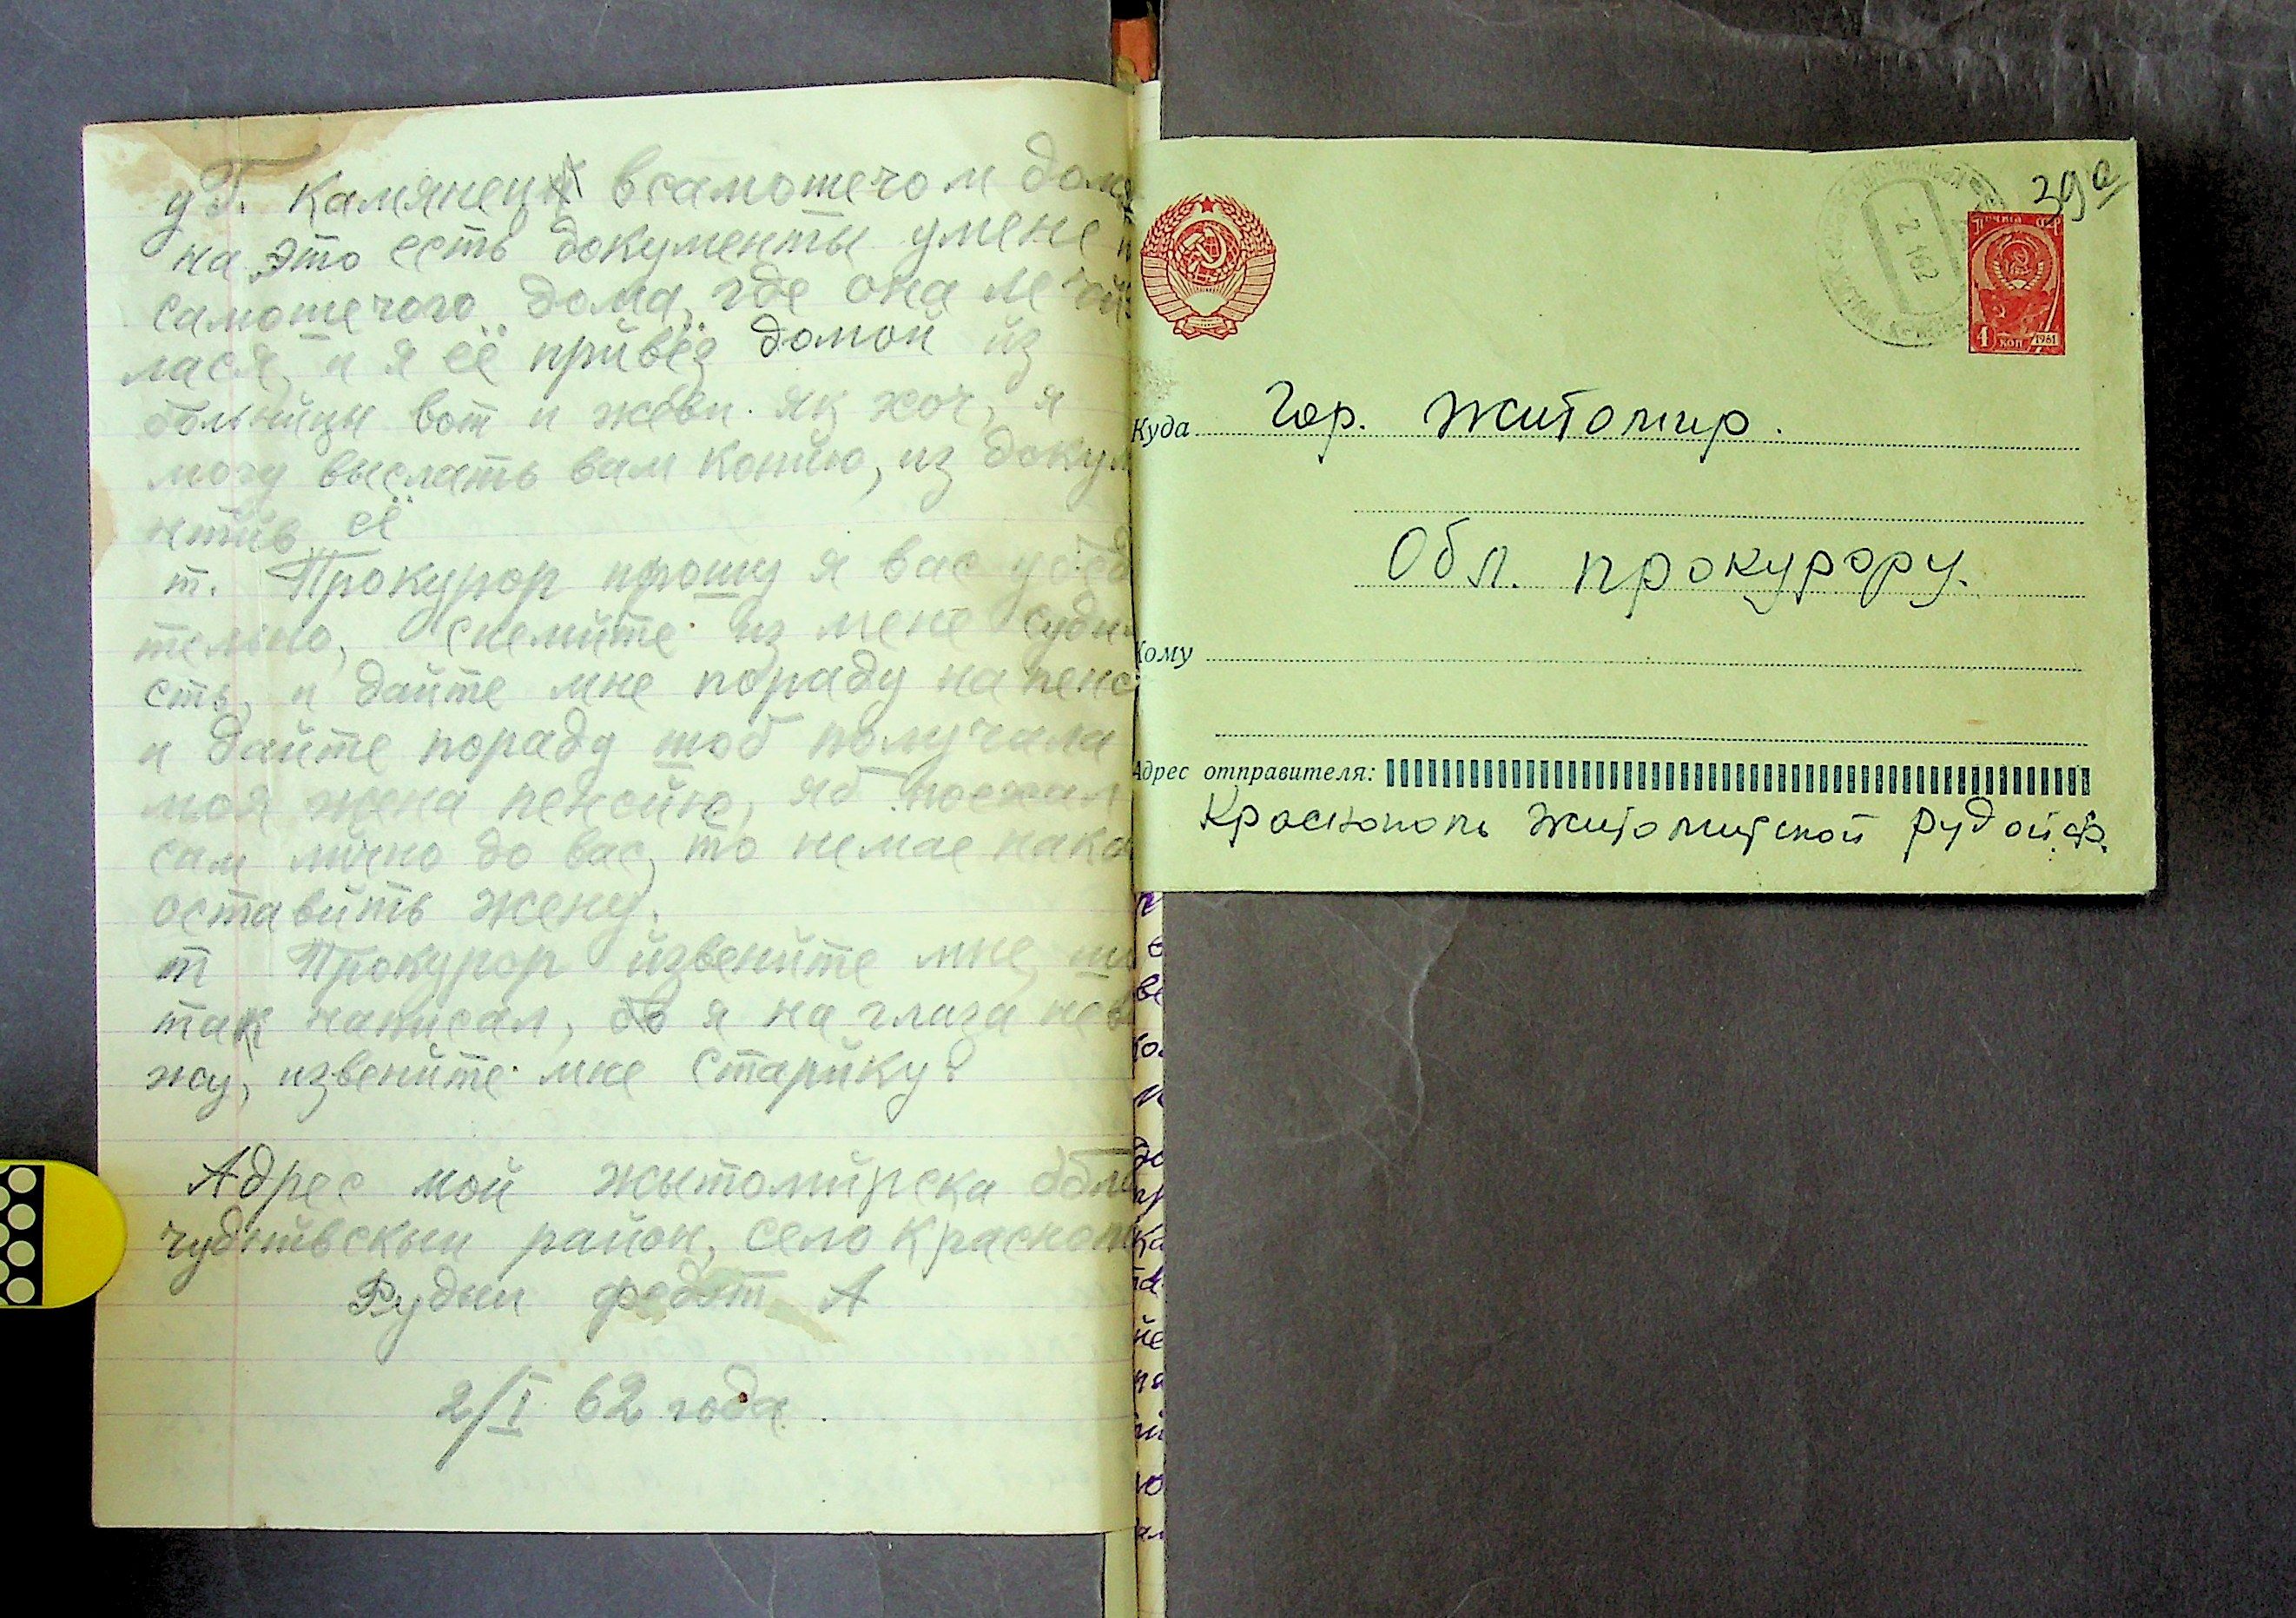 у Г. Камянецк всамотечом дом
на это есть документы умене
самотечого дома, где она леча
лася, и я её привёз домой из
больницы вот и живи як хоч, я
могу выслать вам копию, из докум
нтив её
т. Прокурор прошу я вас убед
тельно, снемите из мене суди
сть, и дайте мне пораду на пенс
и дайте пораду шоб получала
моя жена пенсию, яб поехал
сам лично до вас, то немае нака
оставить жену.
т Прокурор извените мне, ш
так написал, бо я на глаза неви
жу, извените мне старику?
Адрес мой жытомирска обл
чуднивскыи район, село Краснопо
Рудыи федот А
2/I 62 года.
39а
2 1 62
ПОЧТА СССР
4 КОП 1961
Куда Гор. Житомир.
Обл. прокурору.
Кому
Адрес отправителя:
Краснополь Житомирской Рудой.Ф.